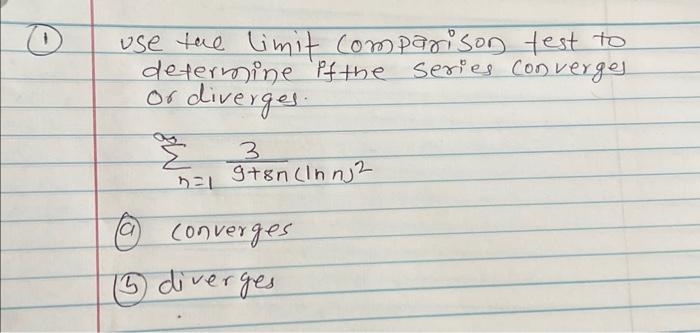 ① use the limit comparison test to
determine if the series converges
or diverges.
∞
Σ 3 / 9+8n(ln n)²
n=1
ⓐ converges
ⓑ diverges